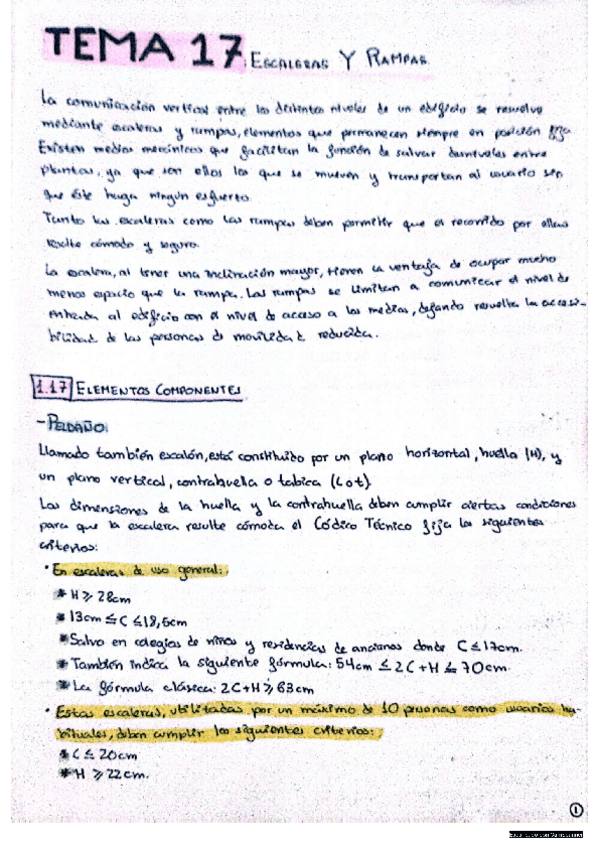 TEMA 17: ESCALERAS Y RAMPAS.
La comunicación vertical entre los distintos niveles de un edificio se resuelve
mediante escaleras y rampas, elementos que permanecen siempre en posición fija
Existen medios mecánicos que facilitan la función de salvar desniveles entre
plantas, ya que son ellos los que se mueven y transportan al usuario sin
que éste haga ningún esfuerzo.
Tanto las escaleras como las rampas deben permitir que el recorrido por ellas
resulte cómodo y seguro.
La escalera, al tener una inclinación mayor, tienen la ventaja de ocupar mucho
menos espacio que la rampa. Las rampas se limitan a comunicar el nivel de
entrada al edificio con el nivel de acceso a los medios, dejando resuelta la accesi-
bilidad de las personas de movilidad reducida.
1.17 ELEMENTOS COMPONENTES
-PELDAÑO:
Llamado también escalón, está constituido por un plano horizontal, huella (H), y
un plano vertical, contrahuella o tabica (C o t).
Las dimensiones de la huella y la contrahuella deben cumplir ciertas condiciones
para que la escalera resulte cómoda el Códico Técnico fija los siguientes
criterios:
• En escaleras de uso general:
* H ≥ 28cm
* 13cm ≤ C ≤ 18,5cm
* Salvo en colegios de niños y residencias de ancianos donde C ≤ 17cm.
* También indica la siguiente fórmula: 54cm ≤ 2C + H ≤ 70cm.
* La fórmula clásica: 2C + H ≥ 63cm
• Estas escaleras, utilizadas por un máximo de 10 personas como usuarios ha-
bituales, deben cumplir los siguientes criterios:
* C ≤ 20cm
* H ≥ 22cm.
1
Escaneado con CamScanner